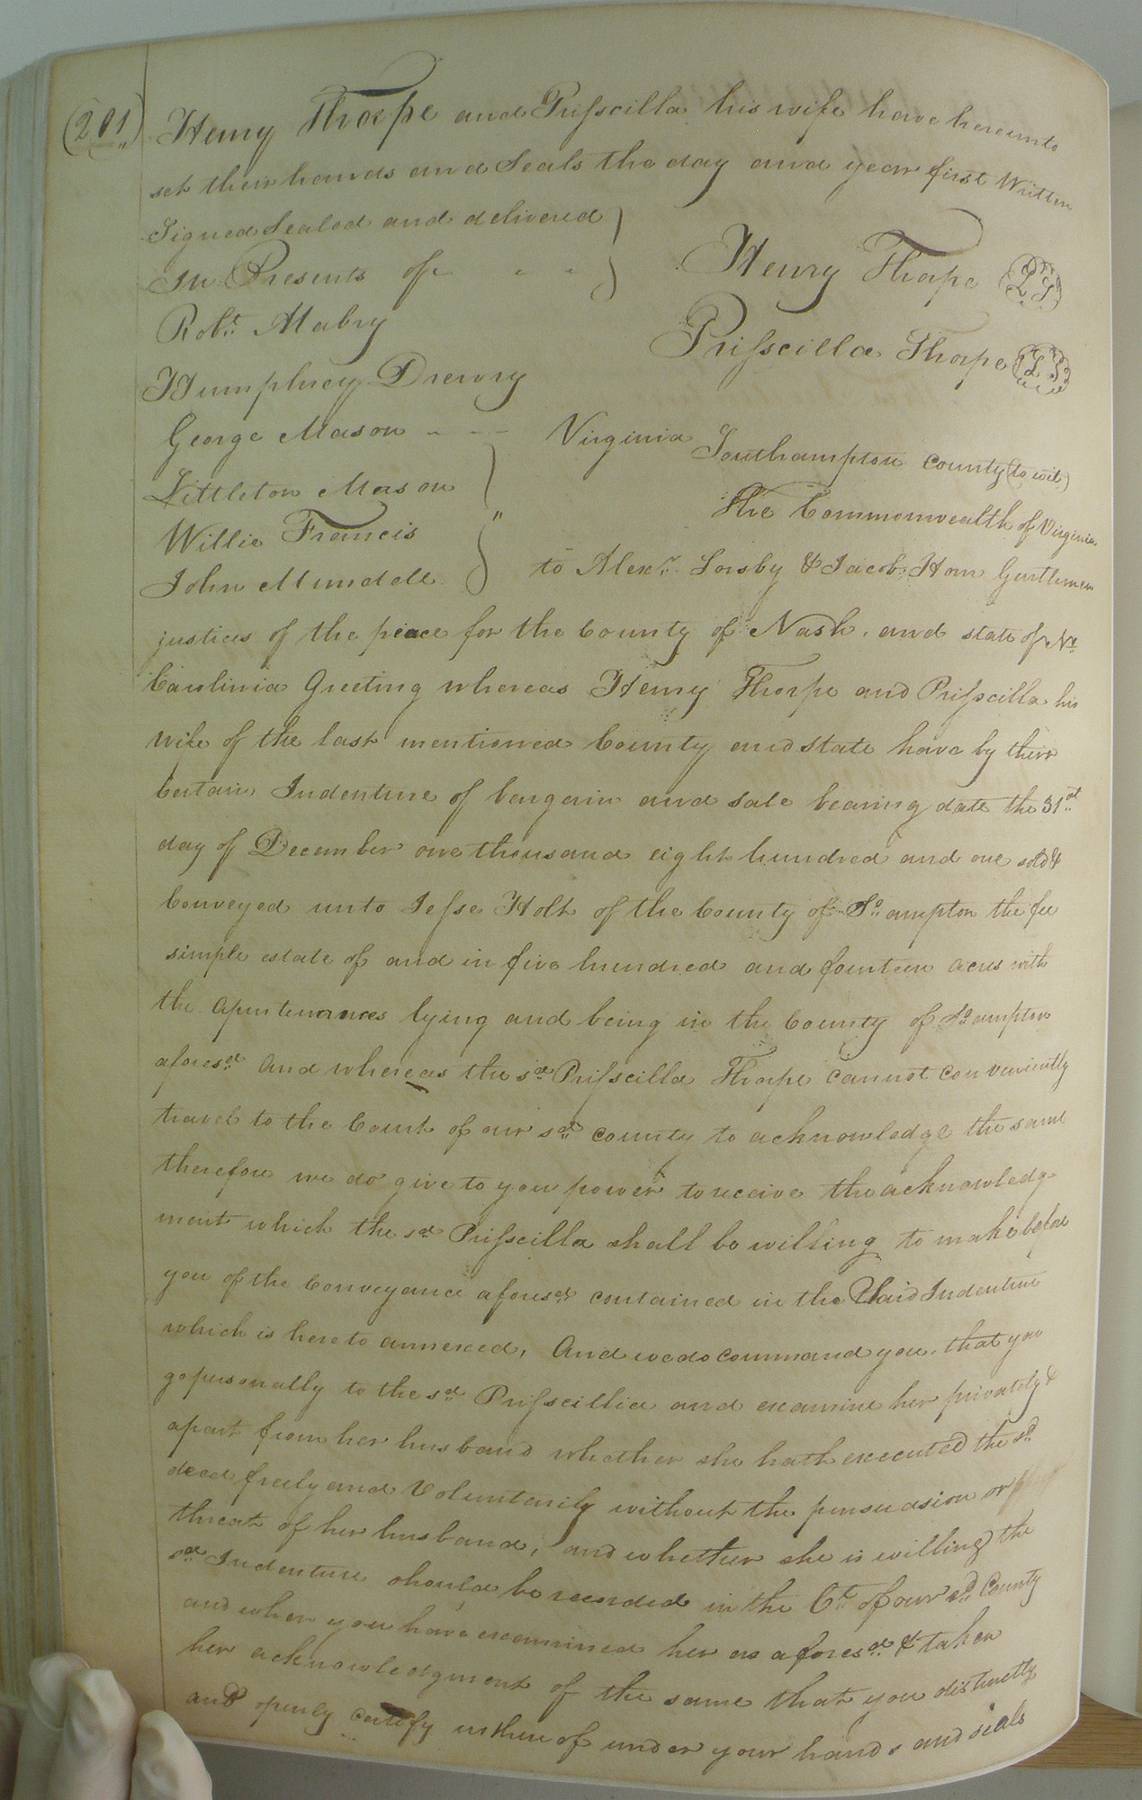 (201) Henry Thorpe and Prisscilla his wife have hereunto
set their hands and Seals the day and year first Written
Signed Sealed and delivered
In Presents of
Henry Thorpe LS
Robt. Mabry
Prisscilla Thorpe LS
Humphrey Drewry
George Mason
Virginia Southampton County (to wit)
Littleton Mason
The Commonwealth of Virginia
Willie Francis
John Mundell
to Alexr. Sorsby & Jacob Horn Gentlemen
justices of the peace for the County of Nash, and state of No
Carolinia Greeting whereas Henry Thorpe and Prisscilla his
wife of the last mentioned County and state have by their
Certain Indenture of bargain and sale bearing date the 31st
day of December one thousand eight hundred and one sold &
Conveyed unto Jesse Holt of the County of So ampton the fee
simple estate of and in five hundred and fourteen acres with
the apurtenances lying and being in the County of So ampton
aforesd. And whereas the sd. Prisscilla Thorpe cannot conveniently
travel to the Court of our sd. county to acknowledge the same
therefore we do give to you power to receive the acknowledg
ment which the sd. Prisscilla shall be willing to make before
you of the Conveyance aforesd. contained in the Said Indenture
which is hereto annexed, And we do command you, that you
go personally to the sd. Prisscillia and examine her privately &
apart from her husband whether she hath executed the sd
deed freely and Voluntarily without the persuasion or
threat of her husband, and whether she is willing the
sd. Indenture should be recorded in the Ct. of our sd. County
and when you have examined her as aforesd. & taken
her acknowledgment of the same that you distinctly
and openly certify us thereof under your hands and seals